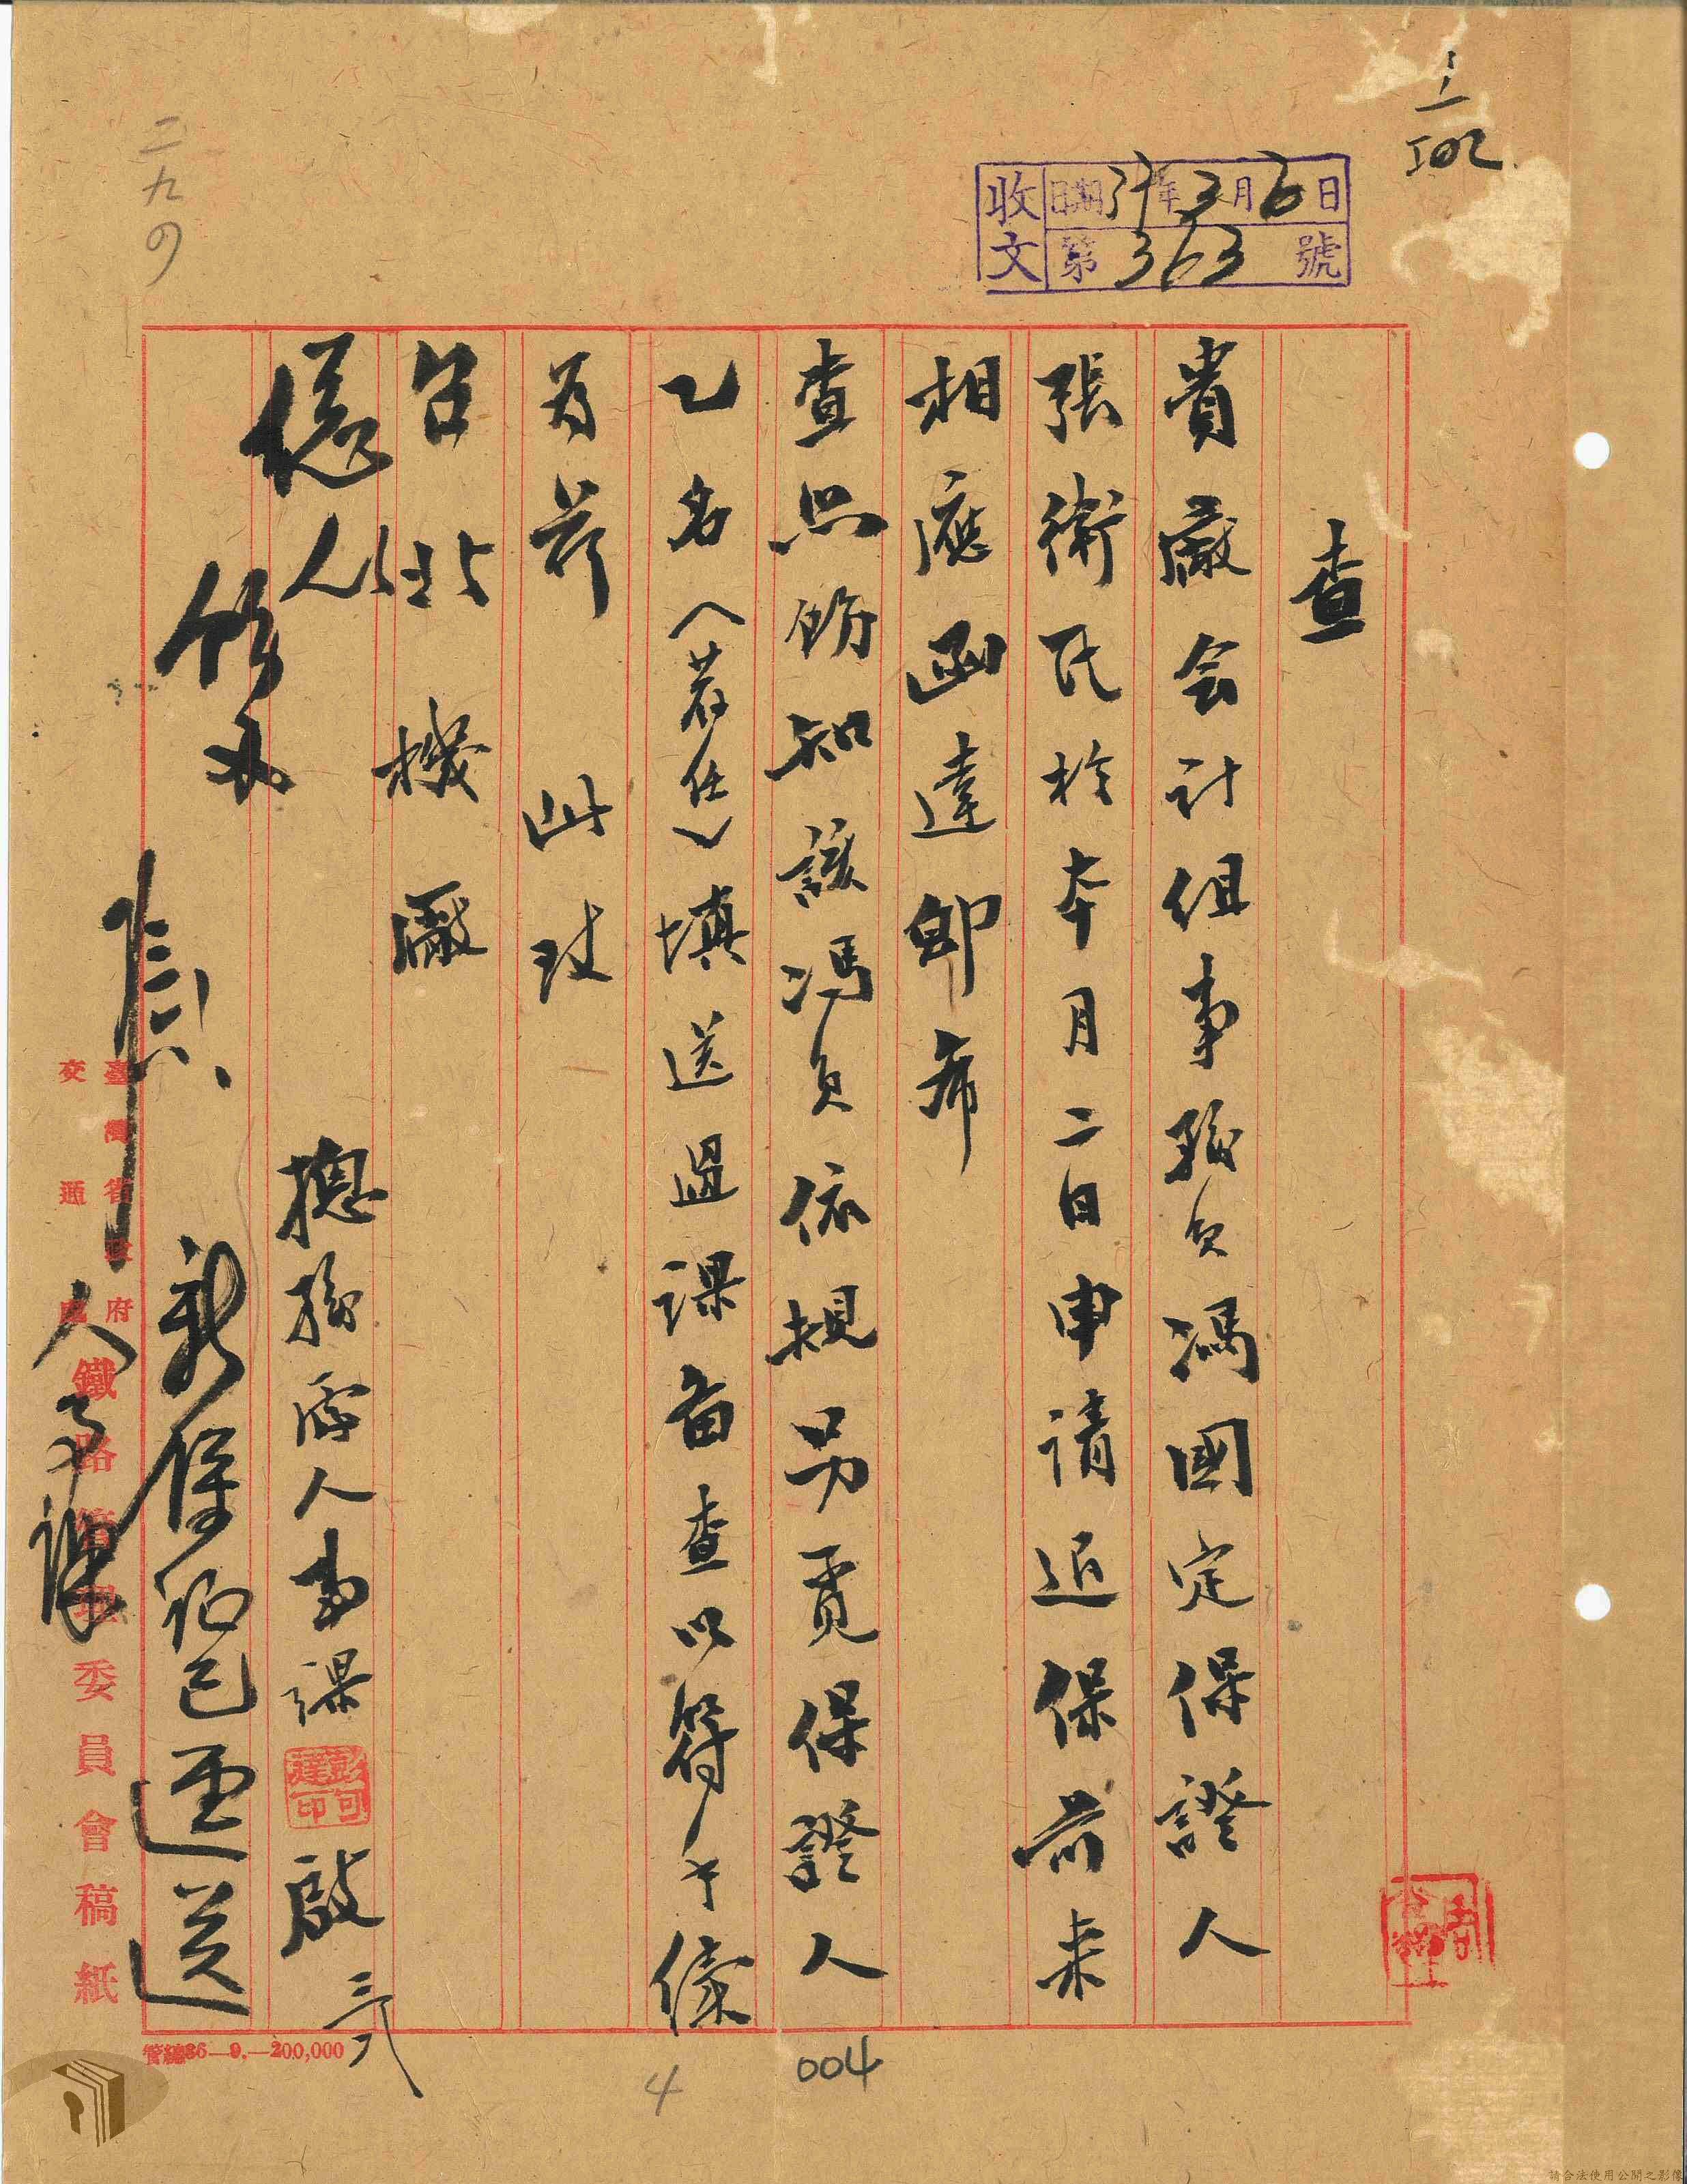 收文
日期37年3月6日
第363號
二九四
查
貴廠会計組事務員馮國定保證人
張衛民於本月二日申請退保前来
相應函達卽希
查照飭知該馮員依規另覓保證人
乙名(荐任)填送過課备查以符手續
为荷 此致
台北機廠
總務處人事課 啟 三八
彭可達印
新保証已逕送
人事課
臺灣省政府
交通處
鐵路管理委員會稿紙
管總36—9.—200,000
004
4
請合法使用公開之影像